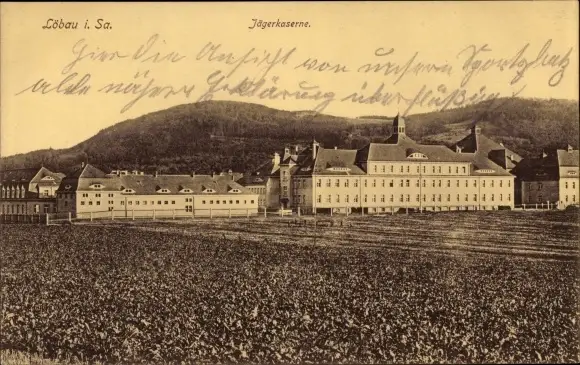 Löbau i. Sa.
Jägerkaserne.
Hier die Ansicht von unserm Sportplatz
alle nähere Erklärung überflüßig